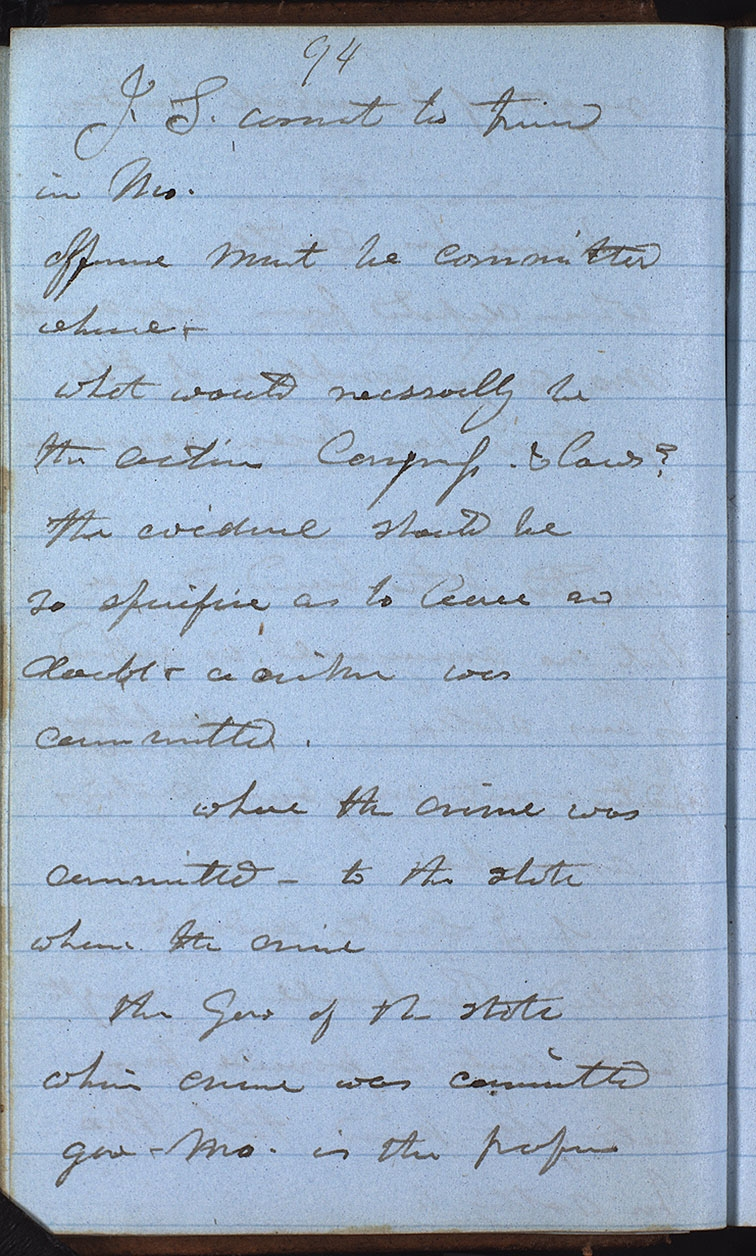 94
J. S. cannot be tried
in Mo.
offence must be committed
where -
what would necessarlly be
the action Congress. & laws?
the evidence should be
so specific as to leave no
doubt a crime was
committed.
where the crime was
committed - to the state
where the crime
the Gov of th state
where crime was committed
gov - Mo. is the proper